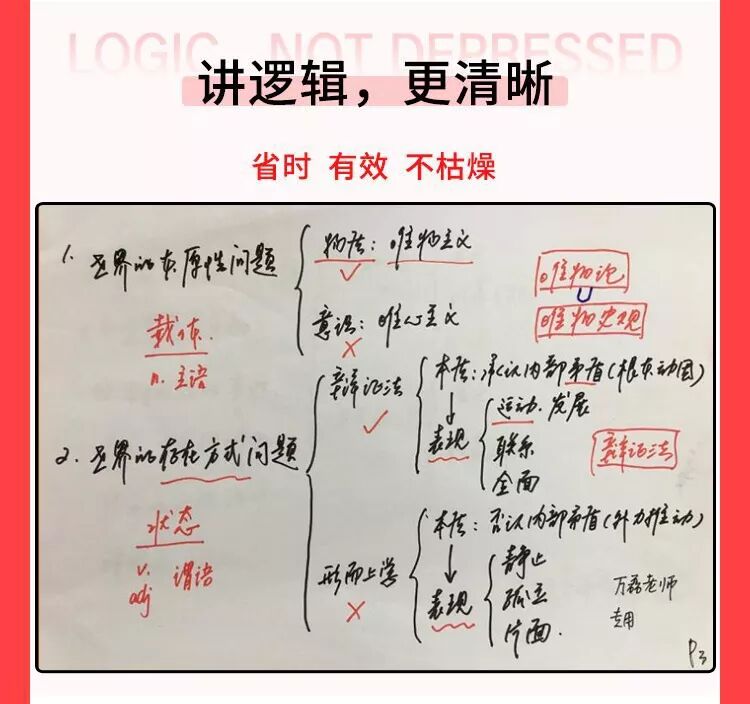 LOGIC NOT DEPRESSED
讲逻辑，更清晰
省时 有效 不枯燥
1. 世界的本原性问题
物质：唯物主义
✓
意识：唯心主义
×
载体.
n. 主语
唯物论
∪
唯物史观
2. 世界的存在方式问题
状态
v. 谓语
adj
辩证法
✓
本质：承认内部矛盾（根本动因）
↓
表现
运动. 发展
联系
全面
辩证法
形而上学
×
本质：否认内部矛盾（外力推动）
↓
表现
静止
孤立
片面.
万磊老师
专用
P3